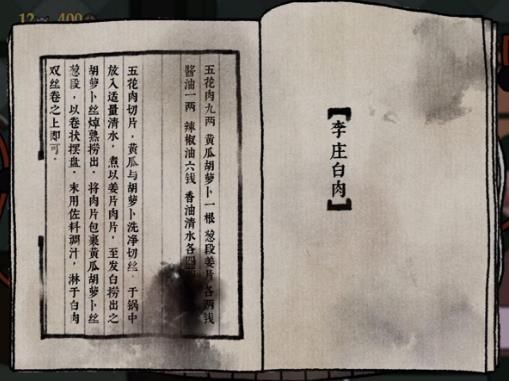 12
400
【李庄白肉】
五花肉九两 黄瓜胡萝卜一根 葱段姜片各两钱
酱油一两 辣椒油六钱 香油清水各四
五花肉切片，黄瓜与胡萝卜洗净切丝。于锅中
放入适量清水，煮以姜片肉片，至发白捞出之
胡萝卜丝焯熟捞出，将肉片包裹黄瓜胡萝卜丝
葱段，以卷状摆盘，末用佐料调汁，淋于白肉
双丝卷之上即可。